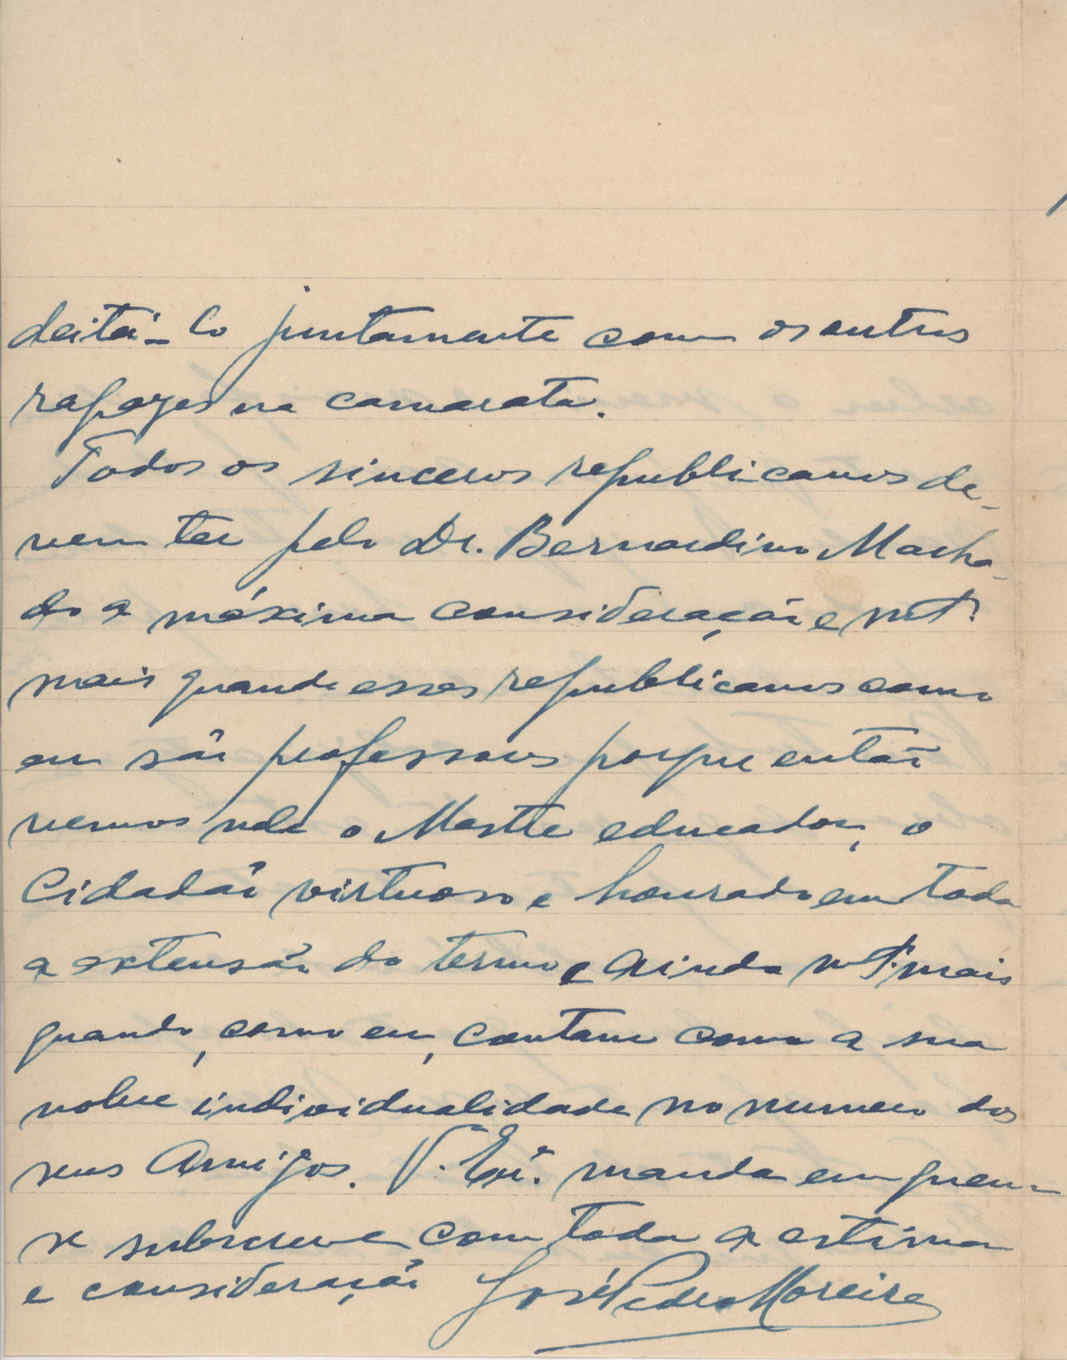 deitá-lo juntamente com os outros
rapazes na camarata.
Todos os sinceros republicanos de-
vem ter pelo Dr. Bernardino Macha-
do a máxima consideração e mt.º
mais quando esses republicanos como
eu são professores porque então
vemos nele o Mestre educador, o
Cidadão virtuoso e honrado em toda
a extensão do termo e ainda mt.º mais
quando, como eu, contam com a sua
nobre individualidade no numero dos
seus Amigos. V. Exª. manda em quem
se subscreve com toda a estima
e consideração José Pedro Moreira